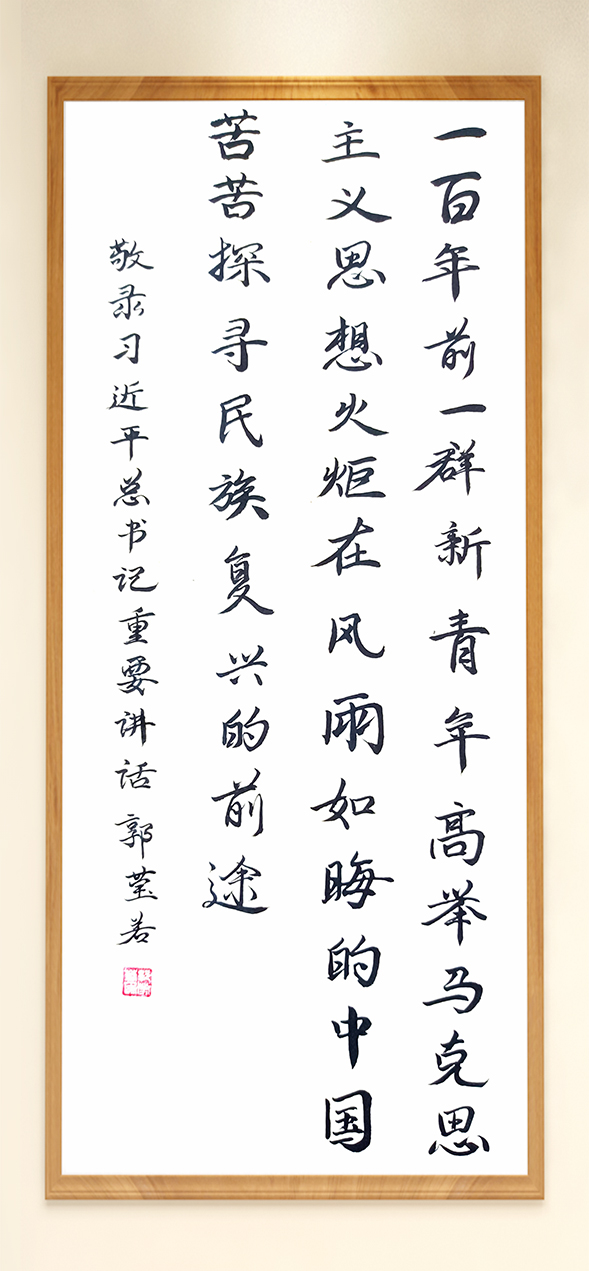 一百年前一群新青年高举马克思
主义思想火炬在风雨如晦的中国
苦苦探寻民族复兴的前途
敬录习近平总书记重要讲话 郭莹若